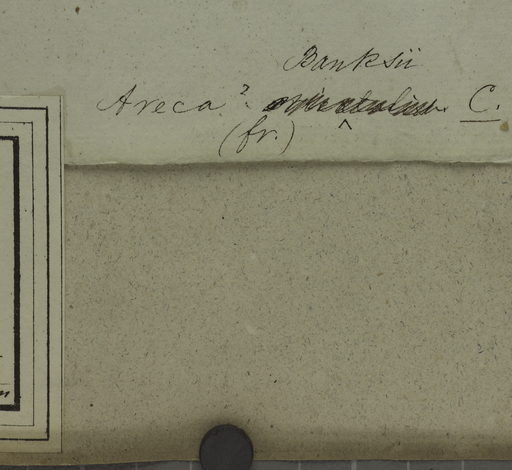 Banksii
Areca ? C.
(fr.)